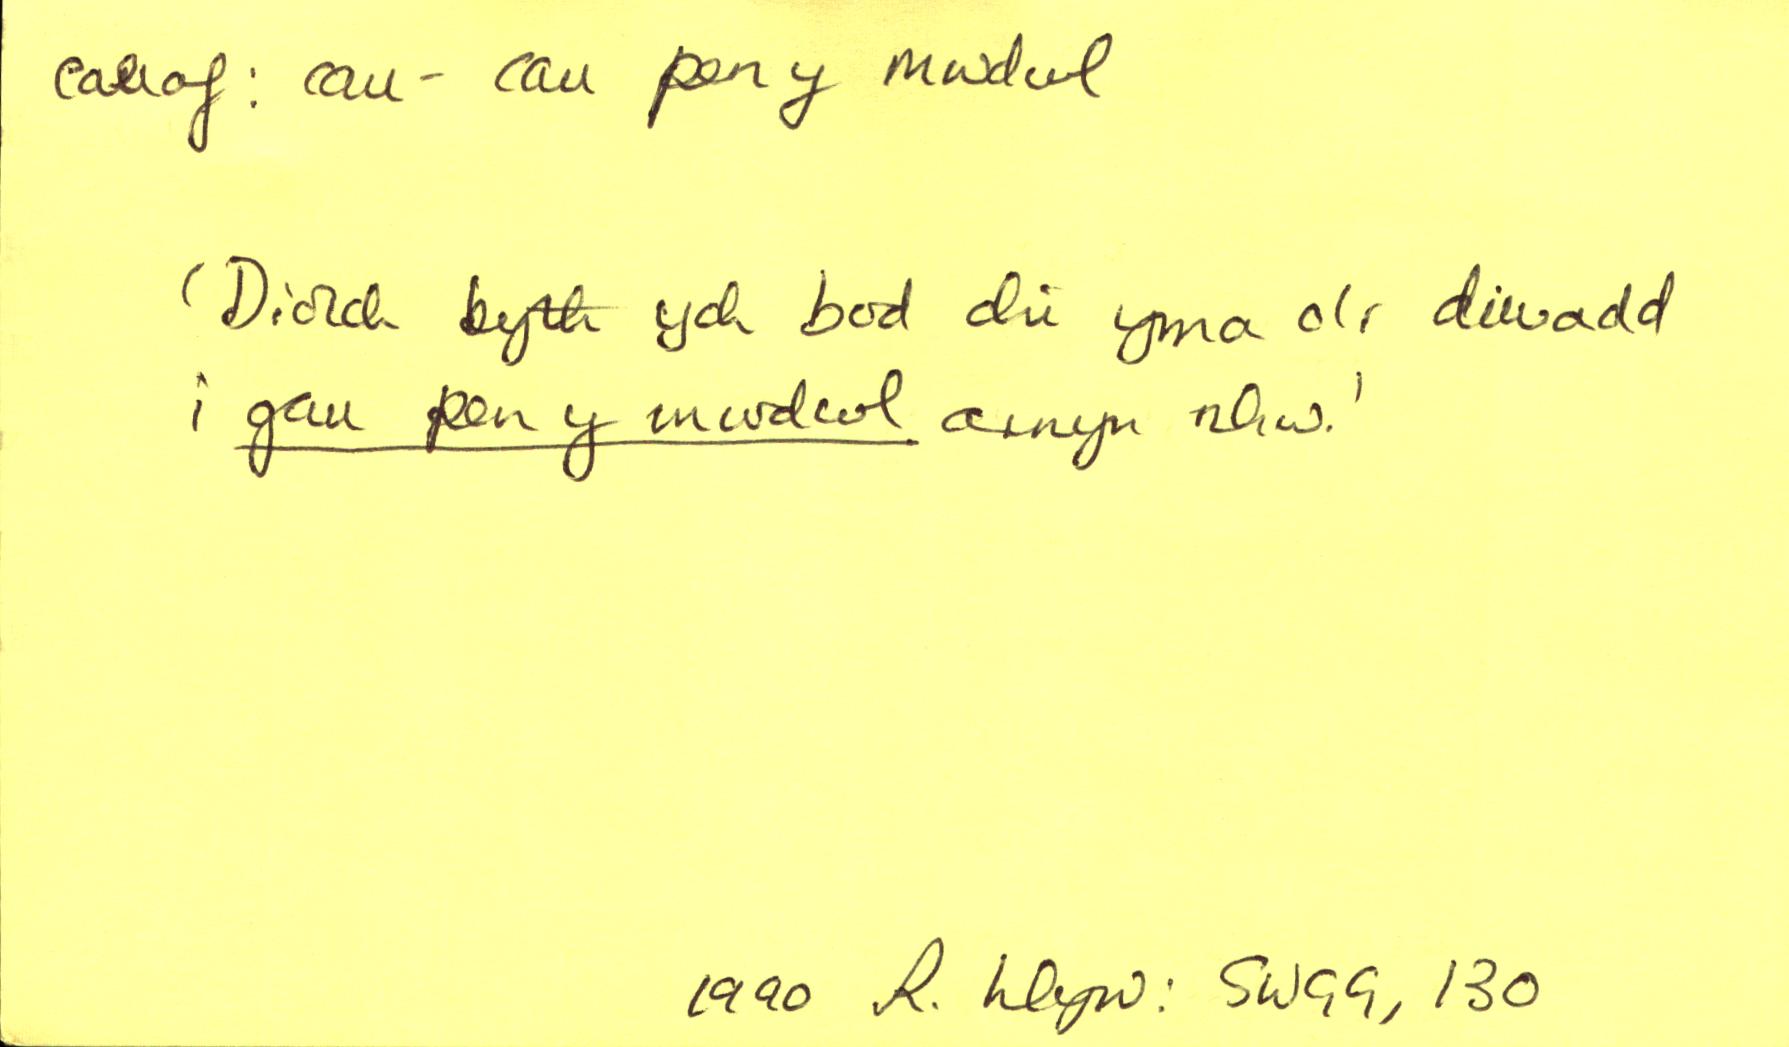 caeaf: cau - cau pen y mwdwl
'Diolch byth ych bod chi yma o'r diwadd
i gau pen y mwdwl arnyn nhw.'
1990 R. Llwyn: SWGG, 130